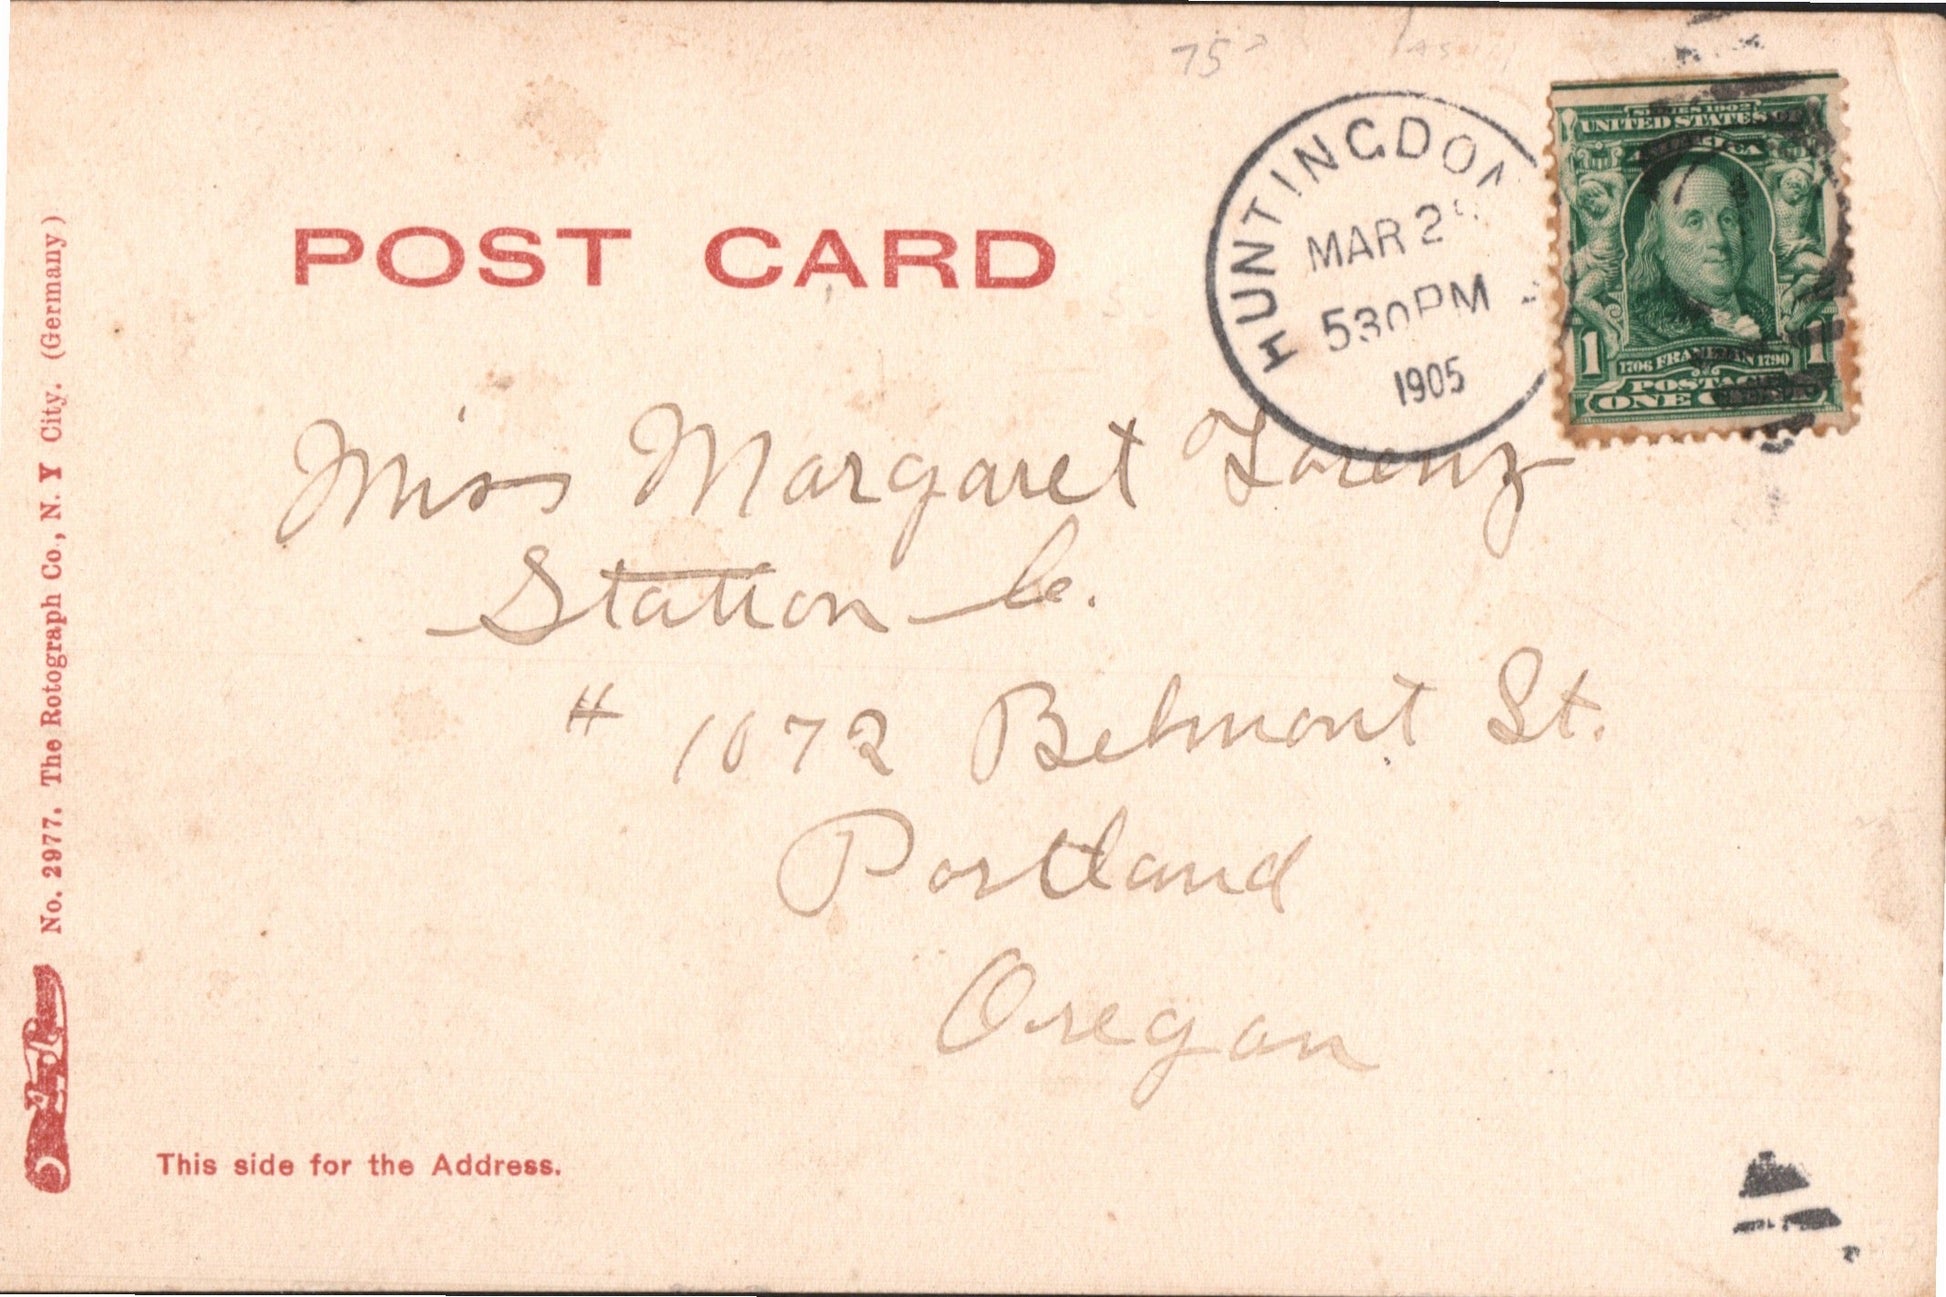 POST CARD
HUNTINGDON
MAR 2
530PM
1905
SERIES 1902
UNITED STATES OF
AMERICA
1706 FRANKLIN 1790
1 1
POSTAGE
ONE
Miss Margaret Lorenz
Station C.
# 1072 Belmont St.
Portland
Oregon
This side for the Address.
No. 2977. The Rotograph Co., N. Y City. (Germany)
75